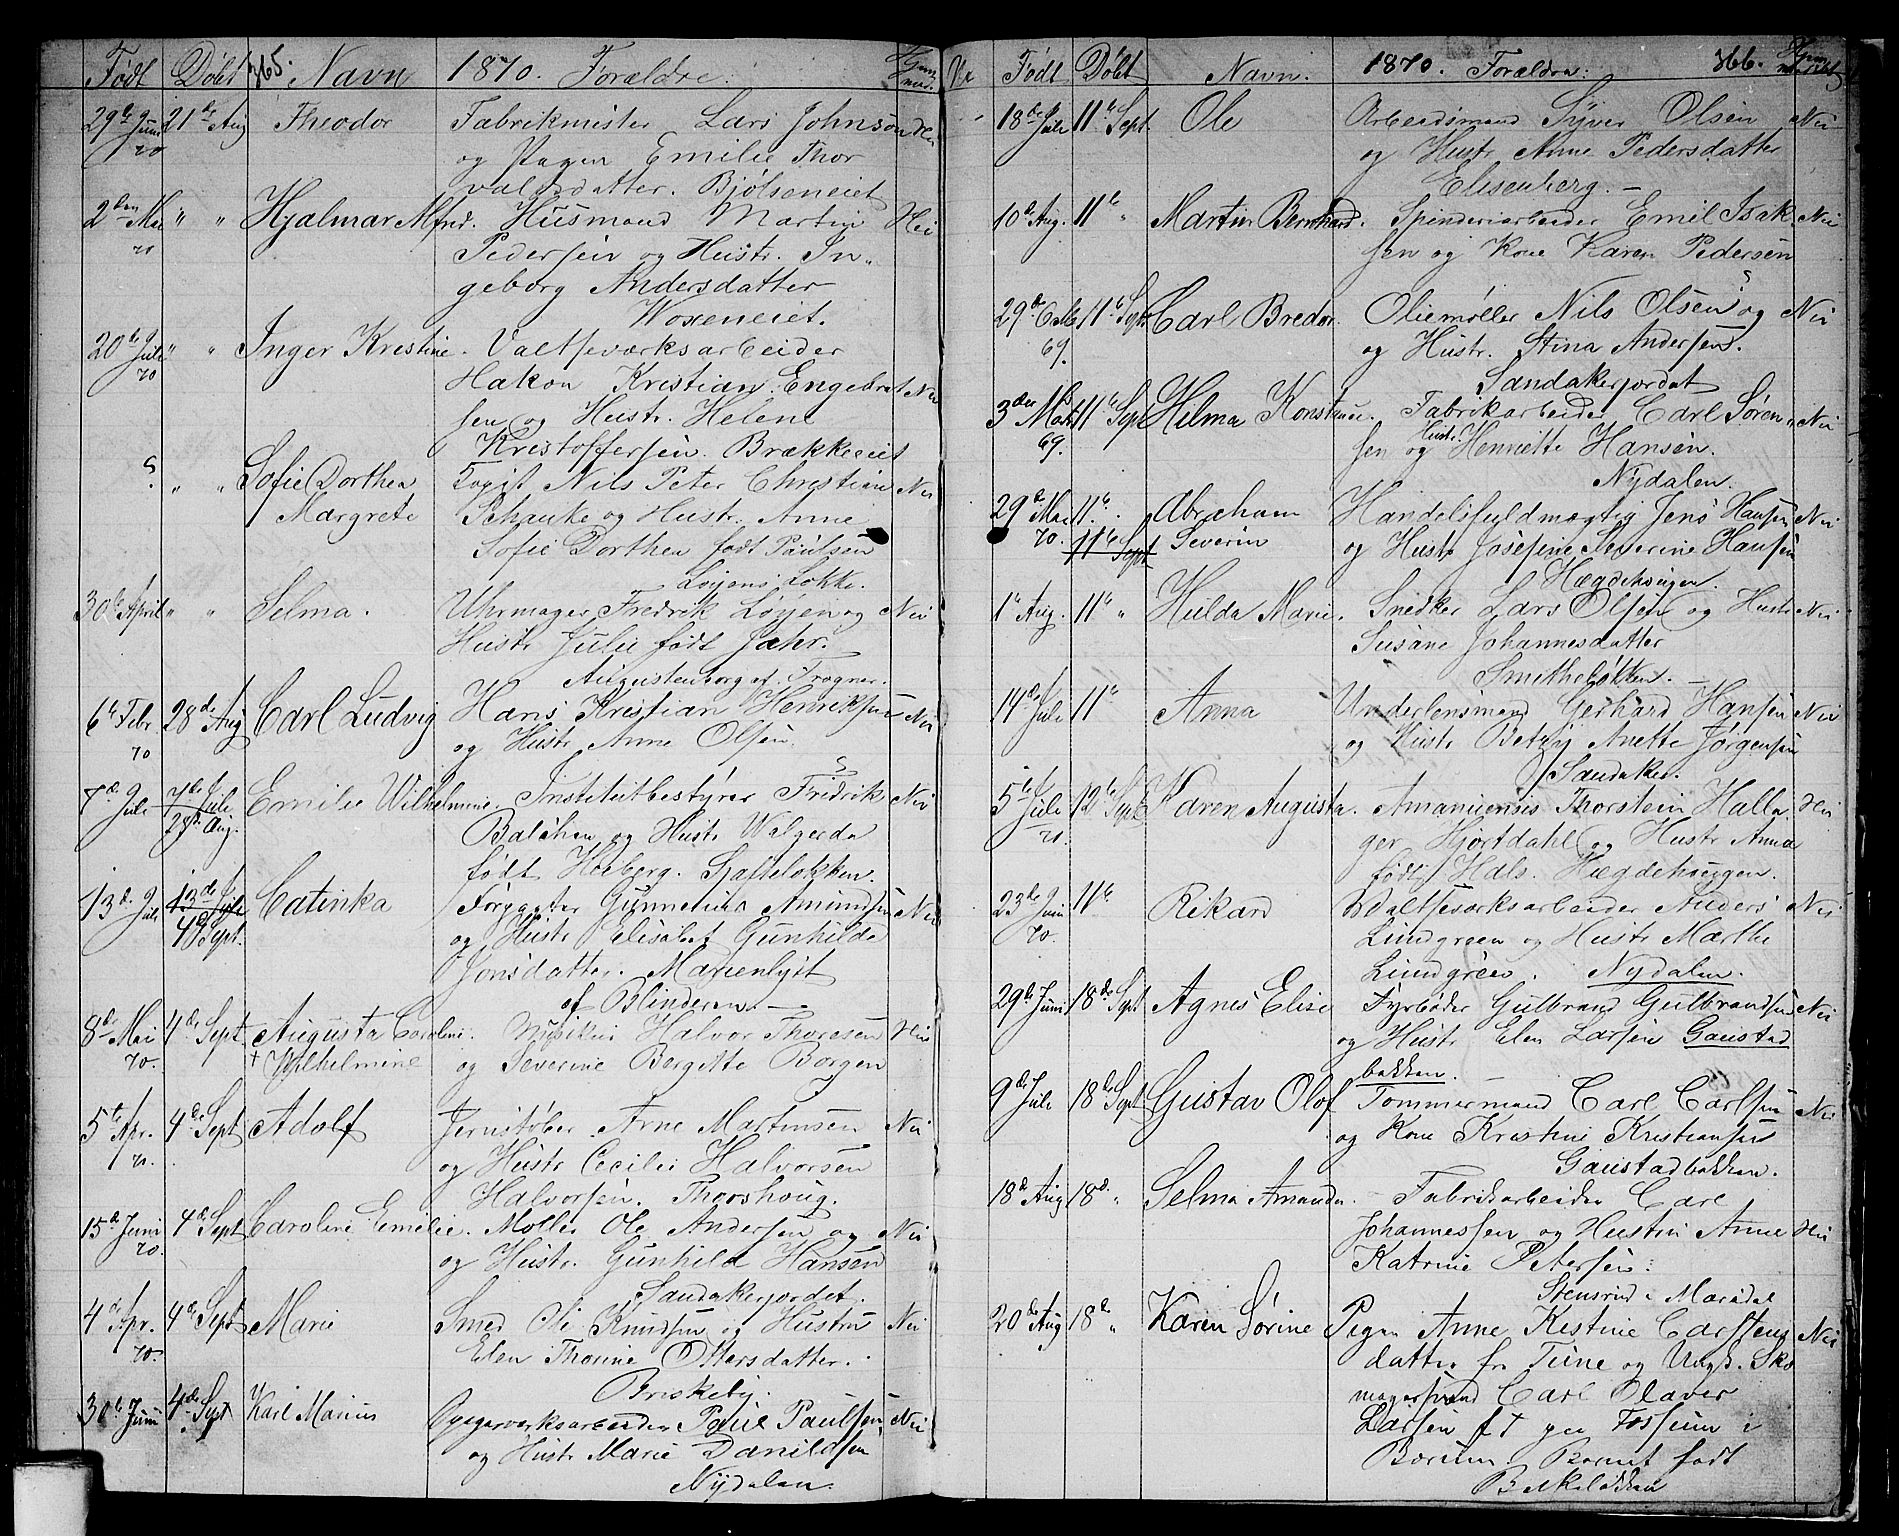 Født Døbt 365. Navn 1870. Forældre:
29de Juni 70 21de Aug Theodor Fabrikmester Lars Johnson
og Pagen Emilie Thor
valdsdatter. Bjølseneiet
2den Mai 70 " " Hjalmar Alfred. Husmand Martin Nei
Pedersen og Hustr. In„
geborg Andersdatter
Woxeneiet.
20de Juli 70 " " Inger Kristine. Valtseværksarbeider
Hakon Kristian Engebret Nei
sen og Hustr. Helene
Kristoffersen. Brækkeeiet
" " Sofie Dorthea Logist Nils Peter Christian Nei
Margrete Schanke og Hustr. Anne
Sofie Dorthea født Paulsen
Løvens Løkke.
30te April " " Selma. Uhrmager Fredrik Løven og Nei
Hustr Julie født Jahr.
Augustenborg af Frogner.
6te Febr 70 28de Aug Carl Ludvig Hans Kristian Henriksen Nei
og Hustr Anne Olsen.
7de Juli 7de Juli 28de Aug. Emilie Wilhelmine. Institutbestyrer Fredrik Nei
Balchen og Hustr Walgerda
født Heiberg. Saftløkken.
13de Juli 13de Juli 4de Sept. Catinka Forgater Gunnerius Amundsen Nei
og Hustr Elisabet Gunhilde
Jonsdatter. Marienlyst
af Blindern. —
8de Mai 70. 4de Sept. Augusta Caroline. Musikus Halvor Thoresen Nei
+ Wilhelmine og Severine Bergitte Borgen
5te Apr. 70. 4de Sept Adolf Jernstøber Arne Martinsen Nei
og Hustr Cecilie Halvorsen
Halvorsen. Thorshoug.
15de Juni 70. 4de Sept Caroline Emilie. Møller Ole Andersen og Nei
og Hustr. Gunhild Hansen
Sandakerjordet.
4de Apr. 70. 4de Sept Marie Smed Ole Knudsen og Hustru Nei
Elen Thorine Ottersdatter.
Briskeby.
30te Juni 4de Sept Karl Marius Gasværksarbeider Paul Paulsen Nei
og Hustr Marie Danildsen
Nydalen.
No Født Døbt Navn. 1870. Forældre: 366.
18de Juli 11te Sept Ole Arbeidsmand Syver Olsen Nei
og Hustr Anne Pedersdatter
Elisenberg. —
10de Aug. 11te " Martin Bernhard. Spinderiarbeider Emil Isak Nei
sen og Kone Karen Pedersen
29de Octb 69. 11te Sept Carl Bredo. Oliemøller Nils Olsen og Nei
og Hustr. Stina Andersen.
Sandakerjordet
3der Mai 69. 11te Sept Hilma Konstance. Fabrikarbeider Carl Sören„ Nei
sen og Hustr. Henriette Hansen.
Nydalen.
29de Mai 70. 11te " Abraham Handelsfuldmægtig Jens Hansen Nei
11te Sept Severin og Hustr Josefine Severine Hansen
Hægdehougen.
1te Aug. 11te " Hulda Marie. Snedker Lars Olsen og Hustr Nei
Susane Johannesdatter
Smitheløkken. —
14de Juli 11te Anna Underlensmand Gerhard Hansen Nei
og Hustr Betzy Anette Jørgensen
Sandaker.
5te Juli 70. 12te Sept Karen Augusta. Amanuensis Thorstein Halla Nei
ger Hjortdahl og Hustr Anna
født Hals. Hægdehougen.
23de Juni 70. 11te Rikard Valtseværksarbeider Anders Nei
Lundgreen og Hustr Marthe
Lundgreen. Nydalen.
29de Juni 18de Sept Agnes Elise Fyrbøder Gulbrand Gulbrandsen Nei
og Hustr Elen Larsen Gaustad
bakken. —
9de Juli 18de Sept Gustav Olof Tommermand Carl Carlsen Nei
og Kone Kristine Kristiansen
Gaustadbakken.
18de Aug 18de " Selma Amanda. Fabrikarbeider Carl
Johannessen og Hustru Anne Nei
Katrine Petersen.
Stensrud i Maridal
20de Aug 18de " Karen Sørine Pigen Anne Kestine Carstens Nei
datter fr Tune og Ungk. Sko
magersvend Carl Olaver
Larsen f T paa Fossum i
Bærum. Barnet født
Bakkeløkken